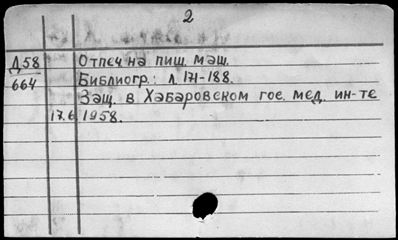 2
Д58 Отпеч на пиш. маш.
664 Библиогр.: л. 171-188.
Защ. в Хабаровском гос. мед. ин-те
17.6.1958.